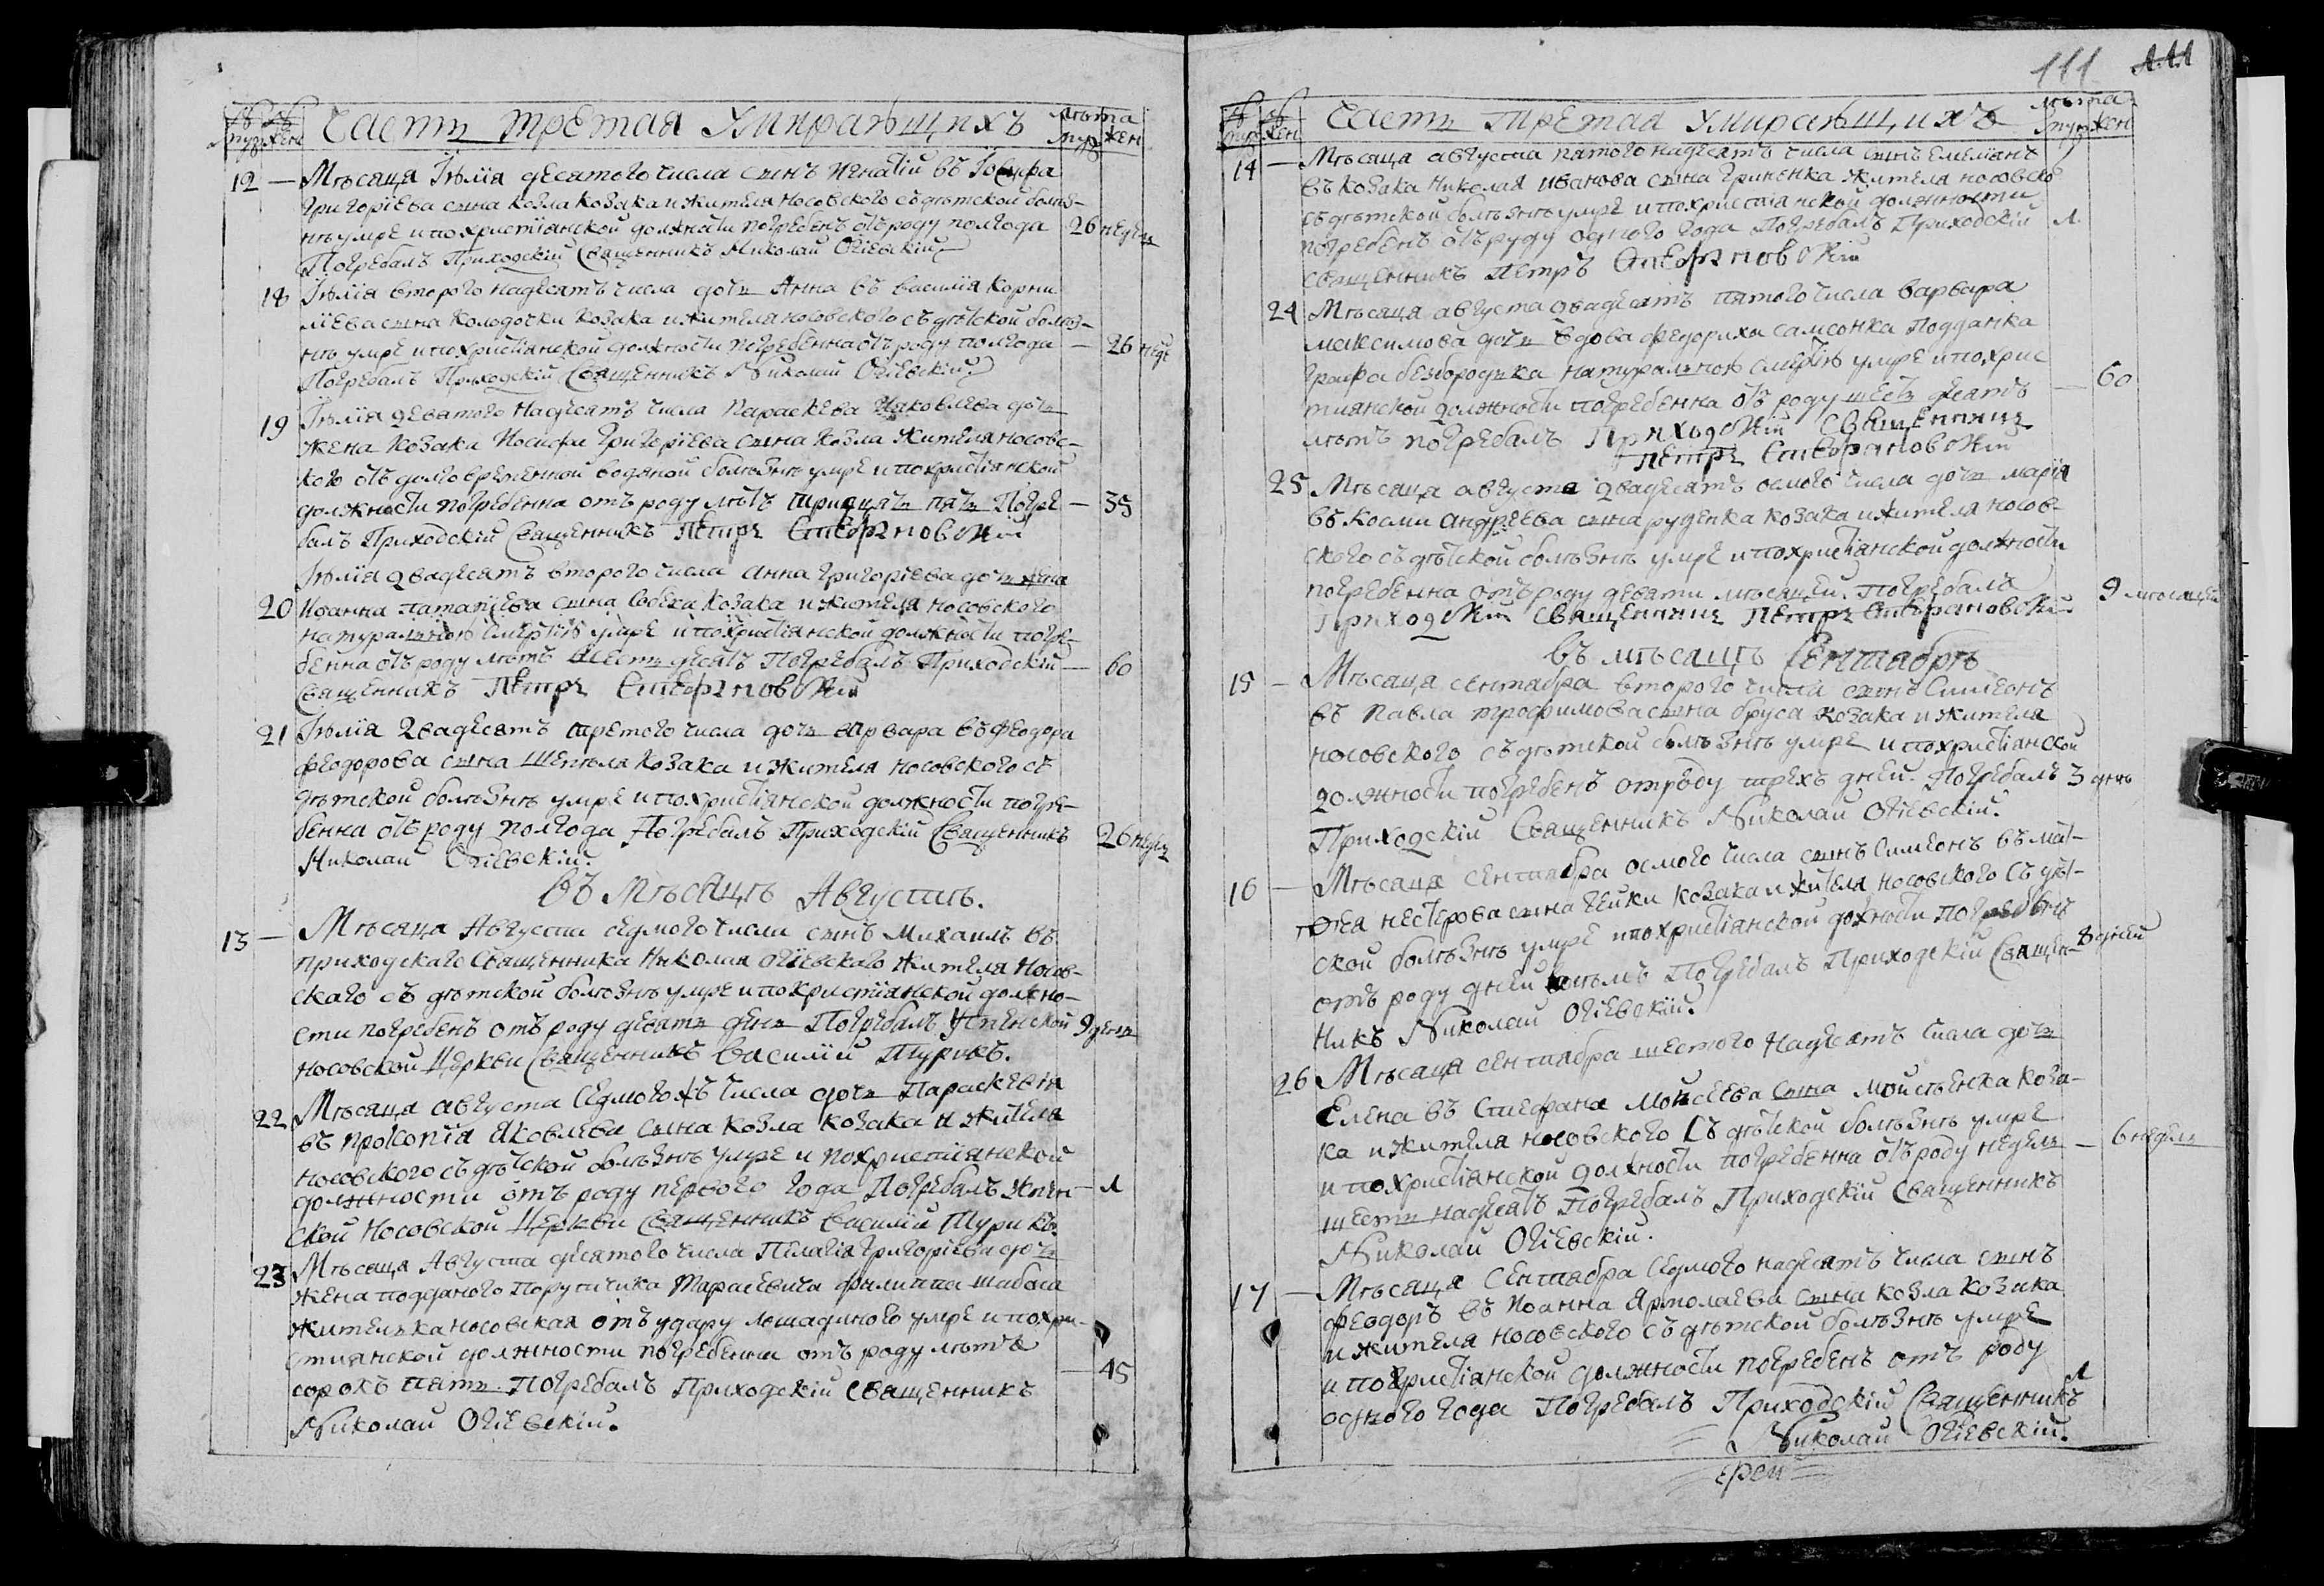 Часть третая Умиравшихъ
лѣта
муж жен
12 — Мѣсяца Іюлія десятого числа сынъ Игнатій въ Іосифа
Григоріева сына козла козака и жителя носовского съ дѣтской болѣз-
нѣ умре и по христіанской должности погребенъ отъ роду полгода 26 недель
Погребалъ Приходскій Священникъ Николай Огіевскій
18 Іюлія второго надесять числа дочь Анна въ василія корни
ліева сына колодочки козака и жителя носовского съ дѣтской болѣз-
нѣ умре и по христіанской должности погребенна отъ роду полгода — 26 неде
Погребалъ Приходскій Священникъ Николай Огіевскій
19 Іюлія деватого надесять числа параскева Ияковлева дочь
жена козака Иосифа Григоріева сына козла жителя носовс-
кого отъ долговременной водяной болѣзнѣ умре и по христіанской
должности погребенна отъ роду лѣтъ тридцять пять Погре — 35
балъ Приходскій Священникъ Петръ Стефановскій
Іюлія двадесять второго числа анна григоріева дочь жена
20 Иоанна патапіева сына козака и жителя носовского
натуралною смертію умре и по христіанской должности погре-
бенна отъ роду лѣтъ шесть десятъ Погребалъ Приходскій — 60
Священникъ Петръ Стефановскій
21 Іюлія двадесять третого числа дочь варвара въ феодора
феодорова сына козака и жителя носовского съ
дѣтской болѣзнѣ умре и по христіанской должности погре-
бенна отъ роду полгода Погребалъ Приходскій Священникъ 26 недель
Николай Огіевскій.
Въ Мѣсяцѣ Августѣ.
13 — Мѣсяца Августа седмого числа сынъ Михаилъ въ
приходскаго Священника Николая огіевскаго жителя Носов-
скаго съ дѣтской болѣзнѣ умре и по христіанской должно-
сти погребенъ отъ роду девять день Погребалъ Успенской 9 день
носовской Церкви Священникъ Василій Турикъ.
22 Мѣсяца августа седмогожъ числа дочь Параскевія
въ прокопія яковлева сына козла козака и жителя
носовского съ дѣтской болѣзнѣ умре и по христіанской
должности отъ роду первого года Погребалъ Успен — 1
ской Носовской Церкви Священникъ Василій Турикъ.
23 Мѣсяца Августа десятого числа Пелагія григоріева дочь
жена подданого Поручичика Тарасевича филиппа шабала
жителька носовская отъ удару лошадиного умре и по хри-
стианской должности погребенна отъ роду лѣтъ
сорокъ пять. Погребалъ Приходскій Священникъ — 45
Николай Огіевскій.
111 111
Часть Третая Умиравшихъ
лѣта
муж жен
14 — Мѣсяца августа патого надесять числа сынъ емеліанъ
въ козака николая иванова сына гриненка жителя носовско
съ дѣтской болѣзнѣ умре и по христіанской должности
погребенъ отъ роду одного года Погребалъ Приходскій 1
священникъ Петръ Стефановскій
24 Мѣсяца августа двадесять патого числа варвара
максимова дочь вдова федориха самсонка Подданка
графа безбородька натуральною смертію умре и по хрис
тианской должности погребенна отъ роду шесть десять — 60
лѣтъ погребалъ Приходскій Священникъ
Петръ Стефановскій
25 Мѣсяца августа двадесять осмого числа дочь марія
въ космы андреева сына руденка козака и жителя носов-
ского съ дѣтской болѣзнѣ умре и по христіанской должности
погребенна отъ роду девяти мѣсяцей. погребалъ 9 мѣсяцей
Приходскій Священникъ Петръ Стефановскій
Въ мѣсяцѣ Сентабрѣ
15 — Мѣсяца сентабра второго числа сынъ Симеонъ
въ павла трофимова сына бруса козака и жителя
носовского съ дѣтской болѣзнѣ умре и по христіанской
должности погребенъ отроду трехъ дней. Погребалъ 3 днѣ
Приходскій Священникъ Николай Огіевскій.
16 — Мѣсяца сентабра осмого числа сынъ Симеонъ въ мат-
ѳеа нестерова сына гейки козака и жителя носовского съ дѣт-
ской болѣзнѣ умре и по христіанской должности погребенъ
отъ роду дней восѣмъ Погребалъ Приходскій Священ- 8 дней
никъ Николай Огіевскій.
26 Мѣсяца сентабра шестого надесять числа дочь
Елена въ Стефана Мойсеева сына мойсѣенка коза-
ка и жителя носовского съ дѣтской болѣзнѣ умре
и по христіанской должности погребенна отъ роду недель — 6 недель
шесть надесять Погребалъ Приходскій Священникъ
Николай Огіевскій.
17 — Мѣсяца Сентабра седмого надесять числа сынъ
феодоръ въ Иоанна ярмолаева сына козла козака
и жителя носовского съ дѣтской болѣзнѣ умре
и по христіанской должности погребенъ отъ роду
одного года Погребалъ Приходскій Священникъ 1
Николай Огіевскій.
ерей